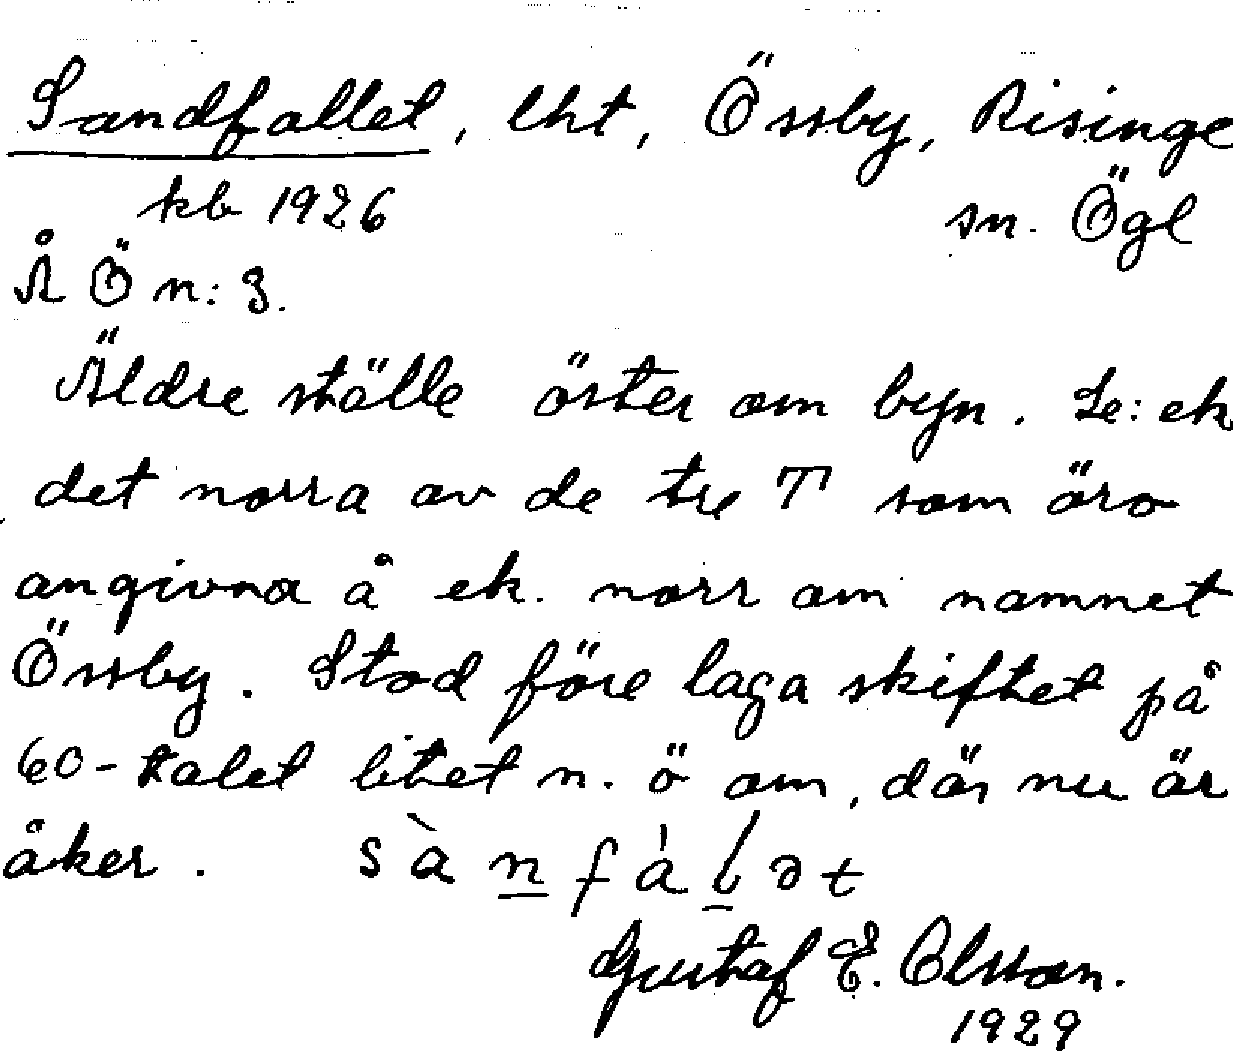 Sandfallet, lht, Össby, Risinge
kb 1926 sn. Ögl
Å Ö n: 3.
Äldre ställe öster om byn. Se: ek
det norra av de tre T som äro
angivna å ek. norr om namnet
Össby. Stod före laga skiftet på
60-talet litet n. ö om, där nu är
åker. sànfálət
Gustaf E. Olsson.
1929